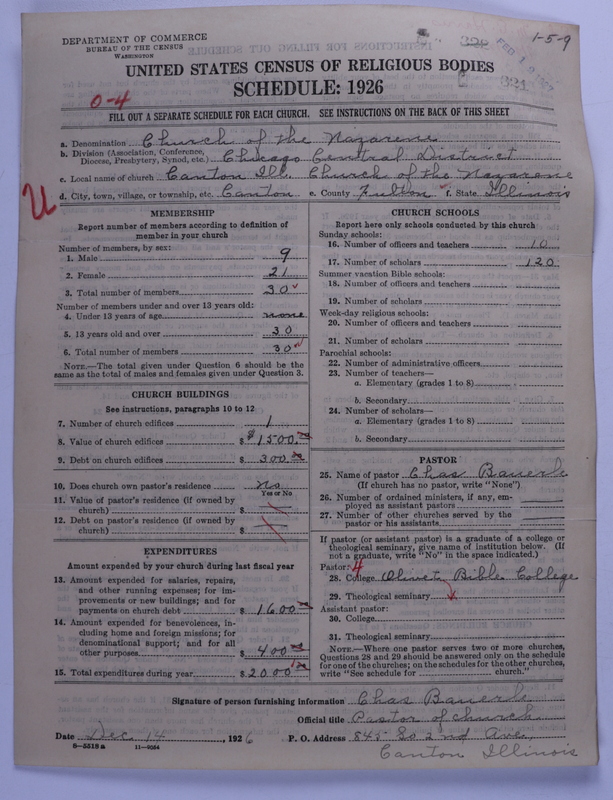 DEPARTMENT OF COMMERCE
BUREAU OF THE CENSUS
WASHINGTON
328
FEB 19 1927
1-5-9
324
UNITED STATES CENSUS OF RELIGIOUS BODIES
SCHEDULE: 1926
0-4
FILL OUT A SEPARATE SCHEDULE FOR EACH CHURCH. SEE INSTRUCTIONS ON THE BACK OF THIS SHEET
a. Denomination Church of the Nazarene
b. Division (Association, Conference, Diocese, Presbytery, Synod, etc.) Chicago Central District
c. Local name of church Canton Ill. Church of the Nazarene
U
d. City, town, village, or township, etc. Canton e. County Fulton f. State Illinois
MEMBERSHIP
Report number of members according to definition of
member in your church
Number of members, by sex:
1. Male 9
2. Female 21
3. Total number of members 30
Number of members under and over 13 years old:
4. Under 13 years of age none
5. 13 years old and over 30
6. Total number of members 30
NOTE.—The total given under Question 6 should be
same as the total of males and females given under Question 3.
CHURCH BUILDINGS
See instructions, paragraphs 10 to 12
7. Number of church edifices 1
8. Value of church edifices $ $1500.00
9. Debt on church edifices $ 300.00
10. Does church own pastor's residence No
Yes or No
11. Value of pastor's residence (if owned by
church) $
12. Debt on pastor's residence (if owned by
church) $
EXPENDITURES
Amount expended by your church during last fiscal year
13. Amount expended for salaries, repairs,
and other running expenses; for im-
provements or new buildings; and for
payments on church debt $ 1600.00
14. Amount expended for benevolences, in-
cluding home and foreign missions; for
denominational support; and for all
other purposes $ 400.00
15. Total expenditures during year $ 2000.00
CHURCH SCHOOLS
Report here only schools conducted by this church
Sunday schools:
16. Number of officers and teachers 10
17. Number of scholars 120
Summer vacation Bible schools:
18. Number of officers and teachers
19. Number of scholars
Week-day religious schools:
20. Number of officers and teachers
21. Number of scholars
Parochial schools:
22. Number of administrative officers
23. Number of teachers—
a. Elementary (grades 1 to 8)
b. Secondary
24. Number of scholars—
a. Elementary (grades 1 to 8)
b. Secondary
PASTOR
25. Name of pastor Chas Bauerle
(If church has no pastor, write "None")
26. Number of ordained ministers, if any, em-
ployed as assistant pastors
27. Number of other churches served by the
pastor or his assistants
If pastor (or assistant pastor) is a graduate of a college or
theological seminary, give name of institution below. (If
not a graduate, write "No" in the space indicated.)
Pastor: 4
28. College Olivet Bible College
29. Theological seminary
Assistant pastor:
30. College
31. Theological seminary
NOTE.—Where one pastor serves two or more churches,
Questions 28 and 29 should be answered only on the schedule
for one of the churches; on the schedules for the other churches,
write "See schedule for church."
Signature of person furnishing information Chas Bauerle
Official title Pastor of church
Date Dec 14, 1926 P. O. Address 845 So 2nd Ave,
8—5518a 11—9064
Canton Illinois